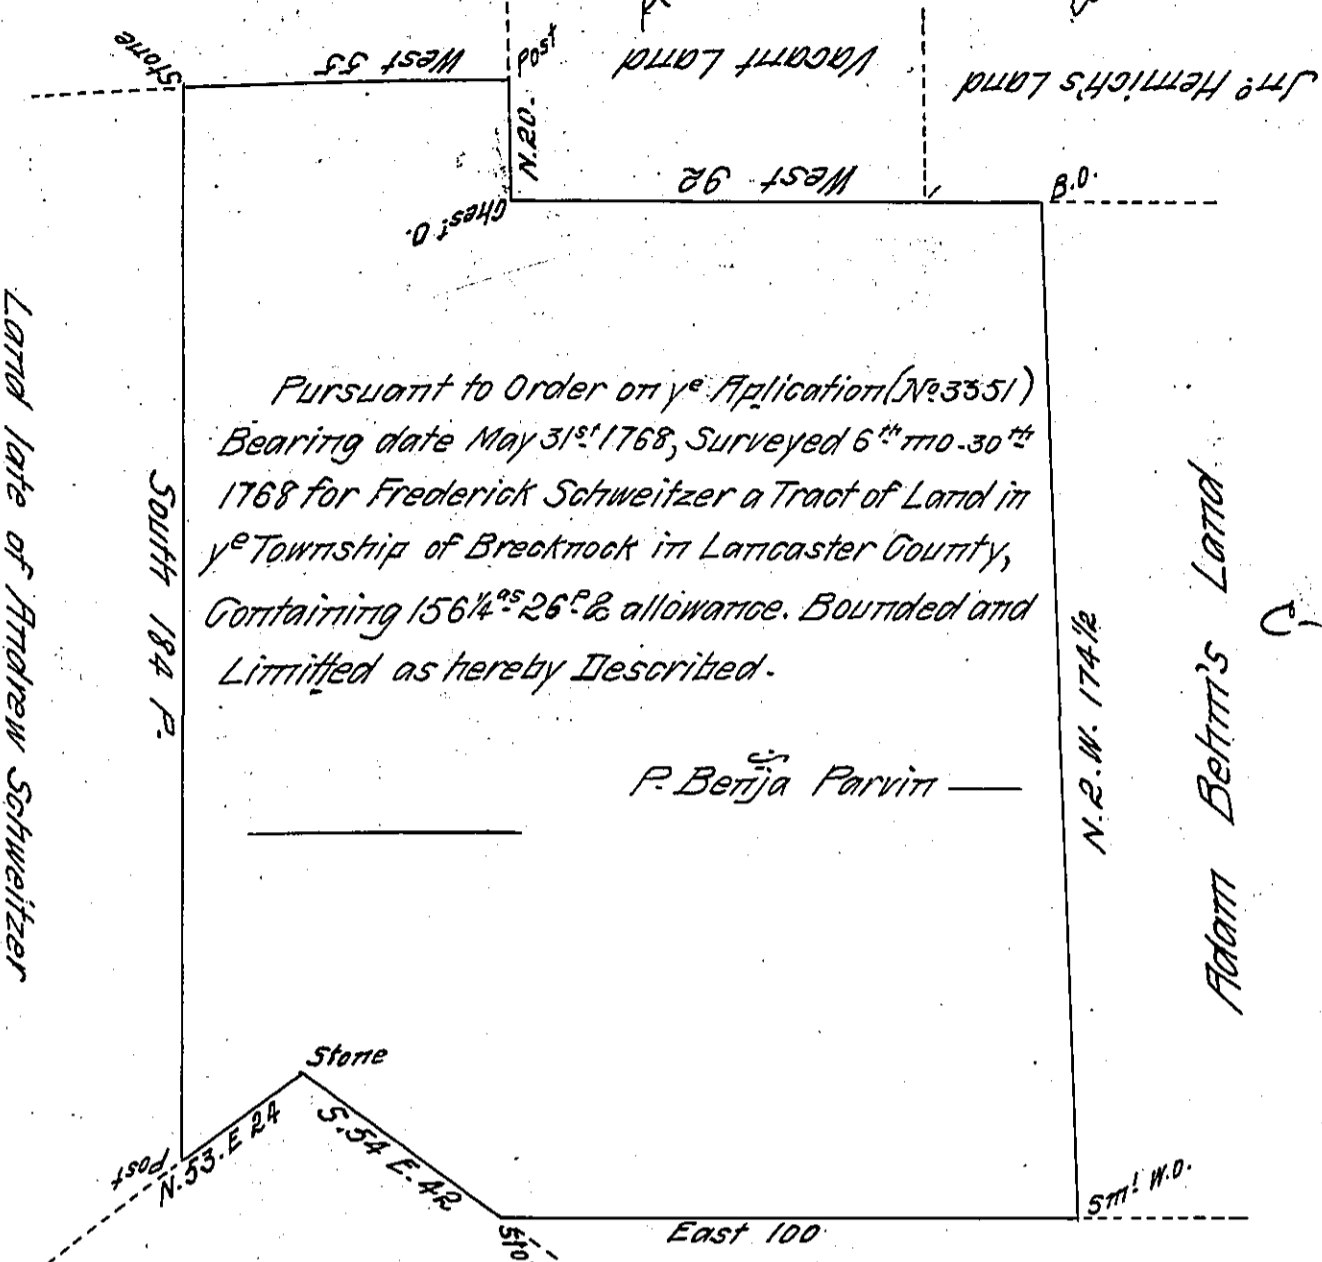 Stone
West 55
Post
Vacant Land
Jnº Henrich's Land
N.20.
Chesᵗ O.
West 92
B.O.
Land late of Andrew Schweitzer
South 184 P.
Pursuant to Order on yᵉ Aplication (Nº 3351)
Bearing date May 31ˢᵗ 1768, Surveyed 6ᵗʰ mo. 30ᵗʰ
1768 for Frederick Schweitzer a Tract of Land in
yᵉ Township of Brecknock in Lancaster County,
Containing 156¼ᵃˢ 26ᵖ & allowance. Bounded and
Limitted as hereby Described.
P. Benja Parvin
N.2.W. 174½
Adam Behm's Land
Stone
Post
N.53.E 24
S.54 E.42
Sto
East 100
Smˡ W.O.